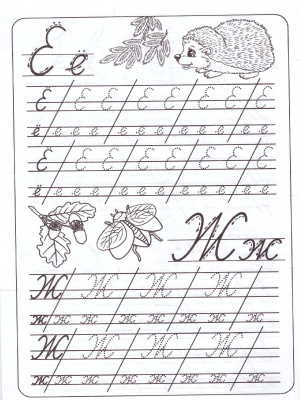 Ё ё
Ё Ё Ё Ё Ё Ё Ё Ё
ё ё ё ё ё ё ё ё ё ё ё ё
Ё Ё Ё Ё Ё Ё Ё Ё
ё ё ё ё ё ё ё ё ё ё ё ё
Ж ж
Ж Ж Ж Ж
ж ж ж ж ж ж ж ж
Ж Ж Ж Ж
ж ж ж ж ж ж ж ж